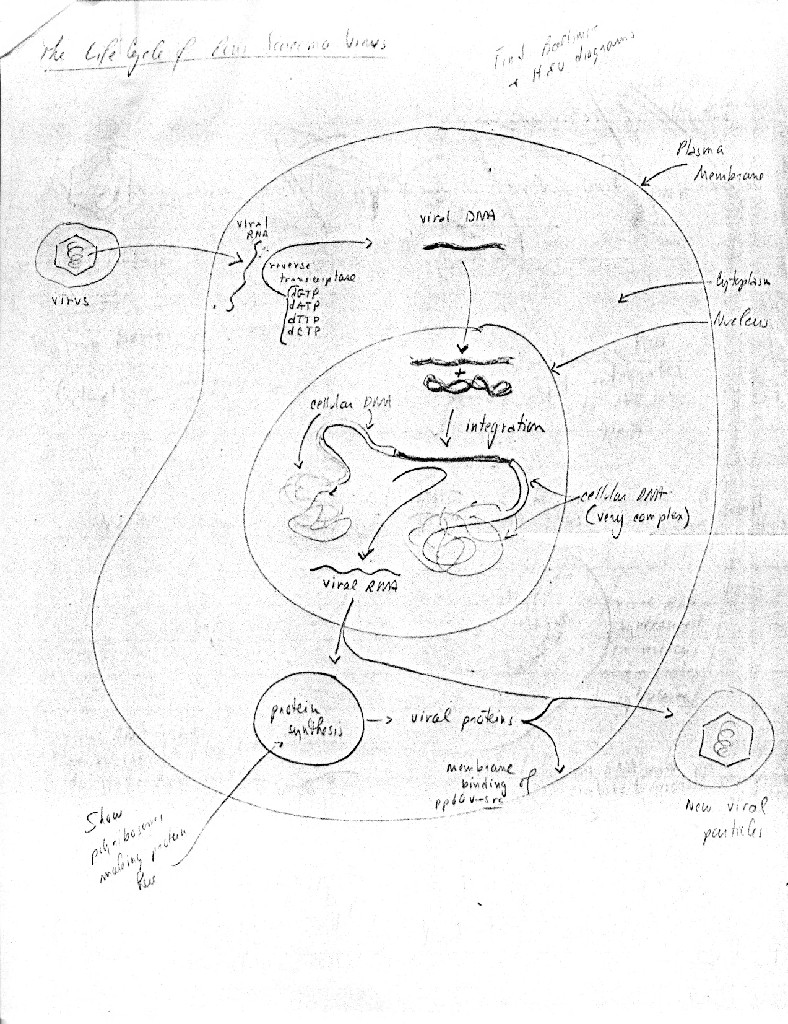 The Life Cycle of Rous Sarcoma Virus
Find
& HSV diagrams
Plasma
Membrane
viral
RNA
viral DNA
reverse
transcriptase
dGTP
dATP
dTTP
dCTP
virus
Cytoplasm
Nucleus
+
cellular DNA
integration
cellular DNA
(very complex)
viral RNA
protein
synthesis
viral proteins
membrane
binding of
pp60v-src
New viral
particles
Show
polyribosomes
making protein
here